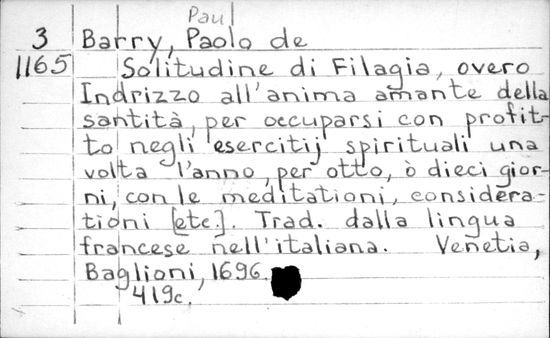 Paul
3 Barry, Paolo de
1165 Solitudine di Filagia, overo
Indrizzo all'anima amante della
santità, per occuparsi con profit-
to negli esercitij spirituali una
volta l'anno, per otto, ò dieci gior-
ni, con le meditationi, considera-
tioni [etc]. Trad. dalla lingua
francese nell'italiana. Venetia,
Baglioni, 1696.
419c.